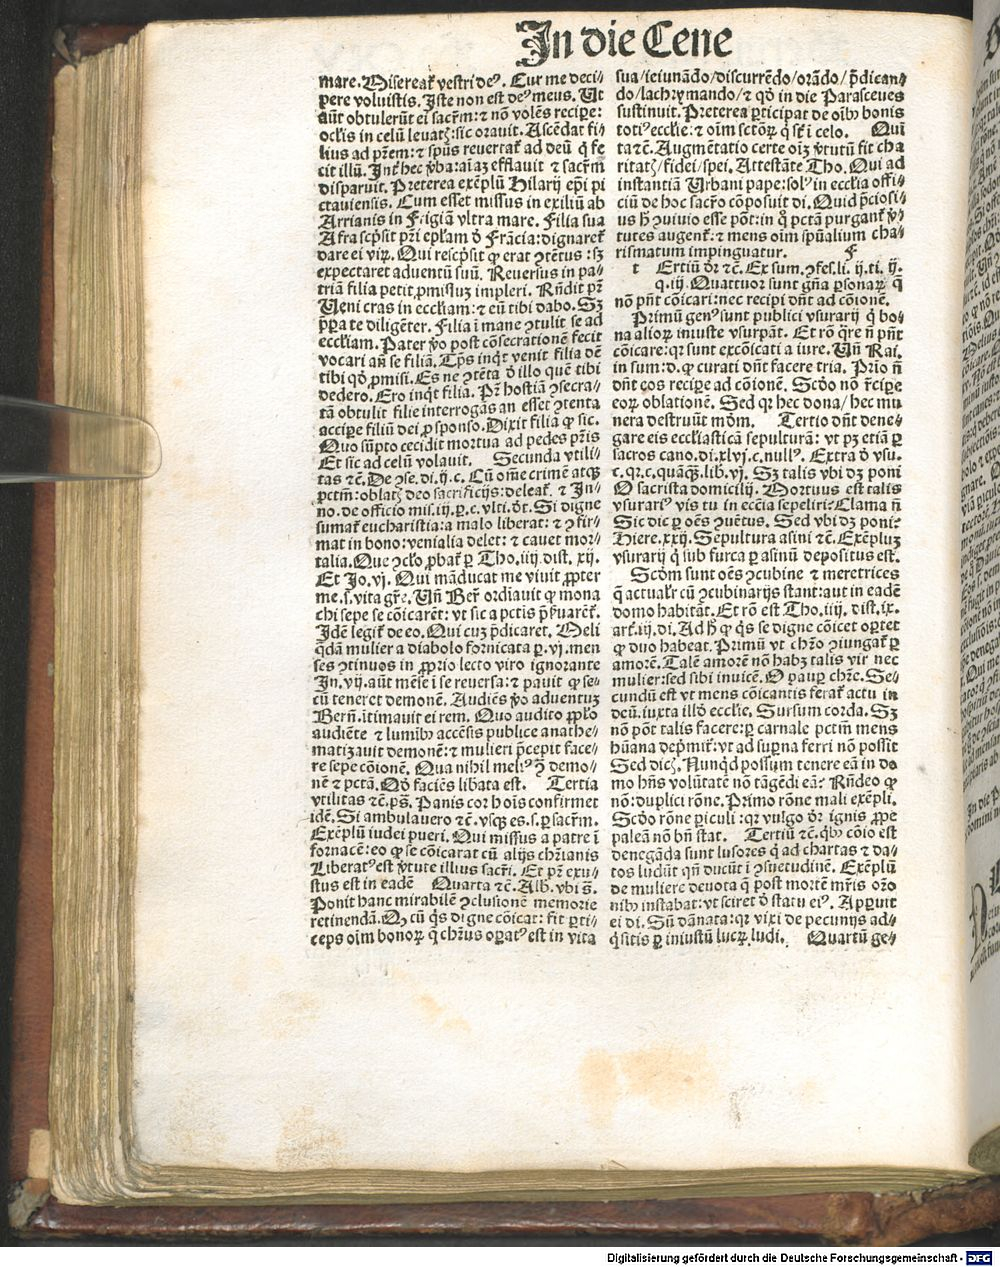 In die Cene
mare. Misereat᷑ vestri deꝰ. Cur me deci⸗
pere voluistis. Iste non est deꝰ meus. Ut
aūt obtulerūt ei sacr̄m: ⁊ nō volēs recipe:
oclis in celū leuatꝭ: sic orauit. Ascēdat fi⸗
lius ad pr̄em: ⁊ sp̄us reuertat᷑ ad deū q̄ fe
cit illū. Int᷑ hec v̄ba: aīaꝫ efflauit ⁊ sacr̄m
disparuit. Preterea exēplū Hilarij ep̄i pi
ctauiensis. Cum esset missus in exiliū ab
Arrianis in Frigiā vltra mare. Filia sua
Afra scp̄sit pr̄i ep̄lam ō Frācia: dignaret᷑
dare ei virꝝ. Qui rescp̄sit ꝙ erat ꝯtētus: sꝫ
expectaret aduentū suū. Reuersus in pa⸗
triā filia petit ꝓmissuꝫ impleri. Rn̄dit pr̄
Ueni cras in eccl̄iam: ⁊ eū tibi dabo. Sꝫ
p̄pa te diligēter. Filia ī mane ꝯtulit se ad
eccl̄iam. Pater v̄o post cōsecrationē fecit
vocari an̄ se filiā. Tp̄s inqt venit filia dē
tibi qō ꝓmisi. Es ne ꝯtēta ō illo quē tibi
dedero. Ero inqt filia. Pr̄ hostiā ꝯsecra⸗
tā obtulit filie interrogās an esset ꝯtenta
accipe filiū dei ꝓ sponso. Dixit filia ꝙ sic.
Quo sūpto cecidit mortua ad pedes pr̄is
Et sic ad celū volauit. Secunda vtili⸗
tas ⁊c̄. De ꝯse. di. ij. c. Cū om̄e crimē atqꝫ
pctm̄: oblatꝭ deo sacrificijs: deleat᷑. ⁊ In⸗
no. de officio mis. iij. p. c. vlti. ōt. Si digne
sumat᷑ eucharistia: a malo liberat: ⁊ ꝯfir⸗
mat in bono: venialia delet: ⁊ cauet mor⸗
talia. Que ꝯclo ꝓbat᷑ ꝑ Tho. iiij. dist. xij.
Et Jo. vj. Qui māducat me viuit ꝓpter
me. s. vita gr̄e. Un̄ Ber̄ ordiauit ꝙ mona
chi sepe se cōicarēt: vt sic a pctis p̄seruarēt᷑.
Idē legit᷑ de eo. Qui cuꝫ p̄dicaret. Meli
qdā mulier a diabolo fornicata ꝑ. vj. men
ses ꝯtinuos in ꝓprio lecto viro ignorante
In. vij. aūt mēse ī se reuersa: ⁊ pauit ꝙ se⸗
cū teneret demonē. Audiēs v̄o aduentuꝫ
Bern̄. ītimauit ei rem. Quo audito ppl̄o
audiēte ⁊ luminibꝰ accēsis publice anathe⸗
matizauit demonē: ⁊ mulieri p̄cepit face⸗
re sepe cōionē. Qua nihil meliꝰ ꝯ̄ demo⸗
nē ⁊ pctā. Qō faciēs libata est. Tertia
vtilitas ⁊c̄. ps̄. Panis cor hoīs confirmet
idē. Si ambulauero ⁊c̄. vsqꝫ es. s. ꝑ sacr̄m.
Exēplū iudei pueri. Qui missus a patre ī
fornacē: eo ꝙ se cōicarat cū alijs chr̄ianis
Liberatꝰ est v̄tute illius sacr̄i. Et pr̄ exu⸗
stus est in eadē Quarta ⁊c̄. Alb. vbi s̄.
Ponit hanc mirabilē ꝯclusionē memorie
retinendā. Qꝫ cū qs digne cōicat: fit ꝑti⸗
ceps oīm bonoꝝ q̄ chr̄us oꝑatꝰ est in vita
sua/ieiunādo/discurrēdo/orādo/p̄dican⸗
do/lachrymando/⁊ qō in die Parasceues
sustinuit. Preterea ꝑticipat de oībꝰ bonis
totiꝰ eccl̄ie: ⁊ oīm sctōꝝ q̄ st̄ ī celo. Qui
ta ⁊c̄. Augmētatio certe oīꝫ v̄tutū fit cha
ritatꝭ/fidei/spei. Attestāte Tho. Qui ad
instantiā Urbani pape: solꝰ in eccl̄ia offi⸗
ciū de hoc sacr̄o cōposuit di. Quid p̄ciosi⸗
us h̄ ꝯuiuio esse pōt: in q̄ pctā purgant᷑ v̄⸗
tutes augent᷑: ⁊ mens oīm sp̄ualium cha⸗
rismatum impinguatur. F
t Ertiū ōr ⁊c̄. Ex sum. ꝯfes. li. ij. ti. ij.
q. iij. Quattuor sunt gn̄a ꝑsonaꝝ q̄
nō pn̄t cōicari: nec recipi dn̄t ad cōionē.
Primū genꝰ sunt publici vsurarij q̄ bo⸗
na alioꝝ iniuste vsurpāt. Et rō qre n̄ pn̄t
cōicare: qꝛ sunt excōicati a iure. Un̄ Rai.
in sum: d. ꝙ curati dn̄t facere tria. Prīo n̄
dn̄t eos recipe ad cōionē. Scdō nō r̄cipe
eoꝝ oblationē. Sed qꝛ hec dona/hec mu
nera destruūt mōm. Tertio dn̄t dene⸗
gare eis eccl̄iasticā sepulturā: vt pꝫ etiā ꝑ
sacros cano. di. xlvj. c. nullꝰ. Extra ō vsu.
c. qꝛ. c. quāqꝫ. lib. vj. Sꝫ talis vbi dꝫ poni
O sacrista domicilij. Mortuus est talis
vsurariꝰ vis tu in eccīa sepeliri: Clama n̄
Sic dic ꝑ oēs ꝯuētus. Sed vbi dꝫ poni:
Hiere. xxij. Sepultura asini ⁊c̄. Exēpluꝫ
vsurarij q̄ sub furca ꝑ asinū depositus est.
Scdm̄ sunt oēs ꝯcubine ⁊ meretrices
q̄ actualr̄ cū ꝯcubinarijs stant: aut in eadē
domo habitāt. Et rō est Tho. iiij. dist. ix.
art. iij. di. Ad h̄ ꝙ qs se digne cōicet oꝑtet
ꝙ duo habeat. Primū vt chr̄o ꝯiungat᷑ ꝑ
amorē. Talē amorē nō habꝫ talis vir nec
mulier: sed sibi inuicē. O pauꝑ chr̄e. Se⸗
cundū est vt mens cōicantis ferat᷑ actu in
dcū. iuxta illō eccl̄ie. Sursum corda. Sꝫ
nō pōt talis facere: ꝑ carnale pctm̄ mens
hūana dep̄mit᷑: vt ad suꝑna ferri nō possit
Sed dicꝭ. Nunqd possum tenere eā in do
mo hn̄s volūtatē nō tāgēdi eā: Rn̄deo ꝙ
nō: duplici rōne. Primo rōne mali exēpli.
Scdō rōne ꝑiculi: qꝛ vulgo ōr ignis ꝓpe
paleā nō bn̄ stat. Tertiū ⁊c̄. qbꝰ cōio est
denegāda sunt lusores q̄ ad chartas ⁊ da⸗
tos ludūt qn̄ ducūt ī ꝯsuetudinē. Exēplū
de muliere deuota q̄ post mortē mr̄is orō
nibꝰ instabat: vt sciret ō statu eiꝰ. Apꝑuit
ei di. Sū dānata: qꝛ vixi de pecunijs ad⸗
q̄sitis ꝑ iniustū lucꝝ ludi. Quartū ge⸗
Digitalisierung gefördert durch die Deutsche Forschungsgemeinschaft - DFG